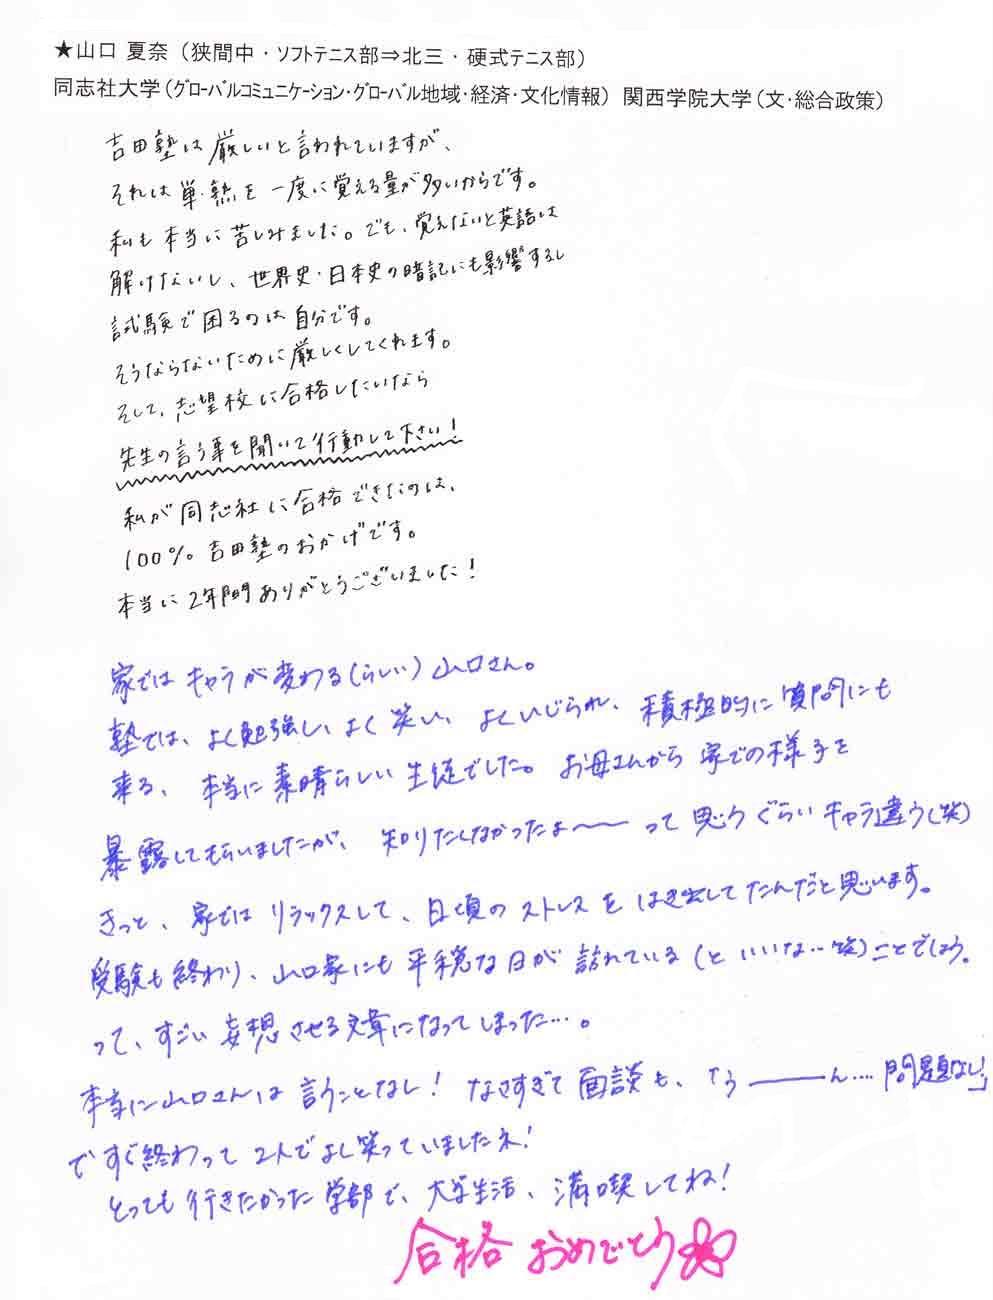 ★山口 夏奈（狭間中・ソフトテニス部⇒北三・硬式テニス部）
同志社大学（グローバルコミュニケーション・グローバル地域・経済・文化情報） 関西学院大学（文・総合政策）
吉田塾は厳しいと言われていますが、
それは単・熟を一度に覚える量が多いからです。
私も本当に苦しみました。でも、覚えないと英語は
解けないし、世界史・日本史の暗記にも影響するし
試験で困るのは自分です。
そうならないために厳しくしてくれます。
そして、志望校に合格したいなら
先生の言う事を聞いて行動して下さい！
私が同志社に合格できたのは、
100％吉田塾のおかげです。
本当に2年間ありがとうございました！
家ではキャラが変わる（らしい）山口さん。
塾では、よく勉強し、よく笑い、よくいじられ、積極的に質問にも
来る、本当に素晴らしい生徒でした。お母さんから家での様子を
暴露してもらいましたが、知りたくなかったよ〜〜って思うぐらいキャラ違う（笑）
きっと、家ではリラックスして、日頃のストレスをはき出してたんだと思います。
受験も終わり、山口家にも平穏な日が訪れている（といいな…笑）ことでしょう。
って、すごい妄想させる文章になってしまった…。
本当に山口さんは言うことなし！なさすぎて面談も、「う―――ん….問題なし」
ですぐ終わって2人でよく笑っていましたネ！
とっても行きたかった学部で、大学生活、満喫してね！
合格おめでとう